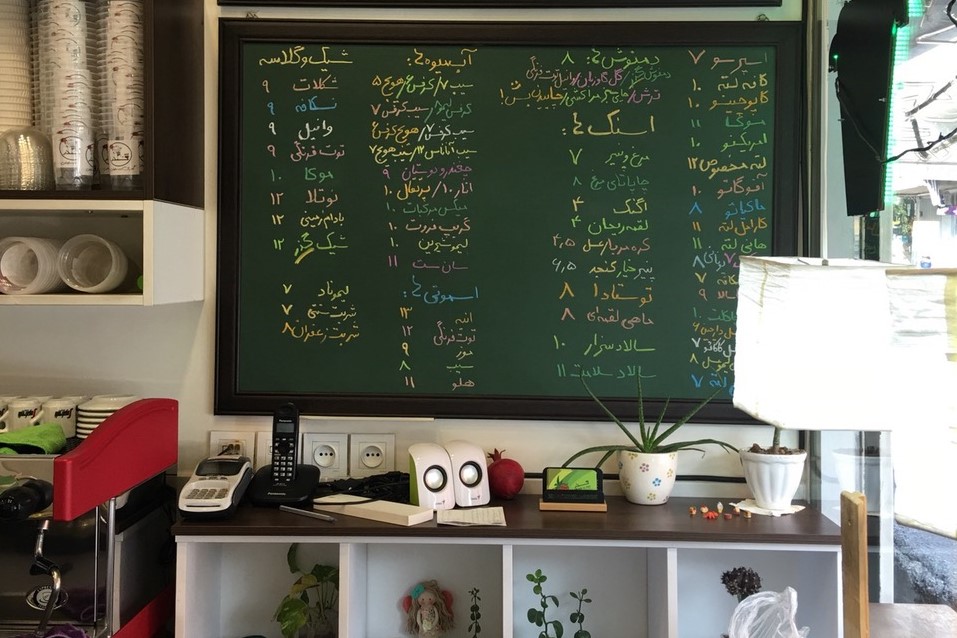 اسپرسو ۷
کافه لته ۱۰
کاپوچینو ۱۰
موکا ۱۱
آمریکانو ۱۰
لته مخصوص ۱۲
آفوگاتو ۱۰
ماکیاتو ۸
کارامل لته ۱۱
هانی لته ۱۱
لته ۷
دمنوش ها: ۸
گل گاوزبان
ترش / چای
اسنک ها:
مرغ و پنیر ۷
چاپاتای مرغ ۸
اگنگ ۴
لقمه ریحان ۴
کره مربا، عسل ۴,۵
پنیر خیار گنجد ۶,۵
توستادا ۸
ماهی لقمه ای ۸
سالاد سزار ۱۰
سالاد سلامت ۱۱
آبمیوه ها:
سیب ۷ / کرفس ۶ / هویج ۵
سیب کرفس ۷
سیب کرفس ۷ / هویج کرفس ۶
سیب آناناس ۱۲ / سیب هویج ۷
۹
انار ۱۰ / پرتقال ۱۰
میکس مرکبات ۱۰
گریپ فروت ۱۰
لیمو شیرین ۱۰
سان ست ۱۱
اسموتی ها:
انبه ۱۳
توت فرنگی ۱۲
موز ۹
سیب ۸
هلو ۱۱
شیک و گلاسه
شکلات ۹
نسکافه ۹
وانیل ۹
توت فرنگی ۹
موکا ۱۰
نوتلا ۱۲
بادام زمینی ۱۲
شیک ۱۲
لیموناد ۷
شربت سنتی ۷
شربت زعفران ۸
Panasonic